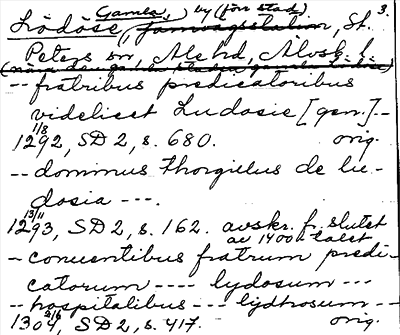 Gamla, by (förr stad) 3.
Lödöse, järnvägsstation, St.
Peters sn, Ale hd, Älvsb. l.
-- fratribus predicatoribus
videlicet Ludosie [gen.] --
1/8
1292, SD 2, s. 680. orig.
-- dominus Thorgillus de lu-
dosia ---.
13/11
1293, SD 2, s. 162. avskr. fr. slutet
av 1400-talet
-- conuentibus fratrum predi-
catorum ---- lydosum ---
-- hospitalibus --- lydhosum --
1304, SD 2, s. 417. orig.